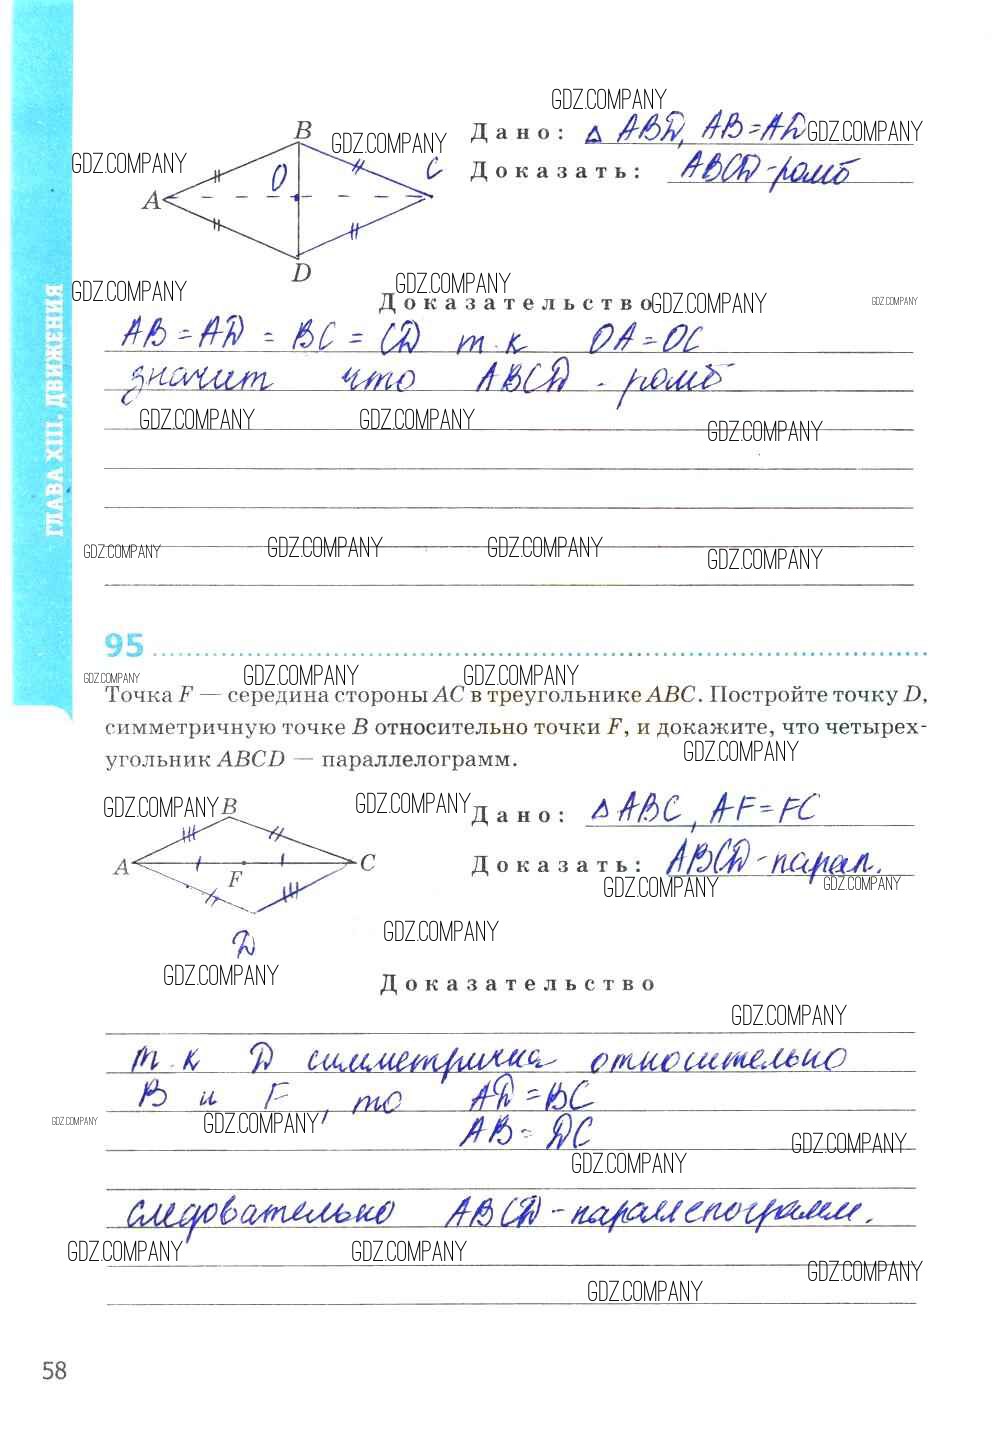 GDZ.COMPANY
Дано: △ ABD, AB=AD GDZ.COMPANY
B GDZ.COMPANY
GDZ.COMPANY
Доказать: ABCD-ромб
O C
A
D
GDZ.COMPANY GDZ.COMPANY
Доказательство GDZ.COMPANY GDZ.COMPANY
AB=AD = BC = CD т.к OA=OC
значит что ABCD - ромб
GDZ.COMPANY GDZ.COMPANY GDZ.COMPANY
GDZ.COMPANY GDZ.COMPANY GDZ.COMPANY GDZ.COMPANY
ГЛАВА XIII. ДВИЖЕНИЯ
95
GDZ.COMPANY GDZ.COMPANY GDZ.COMPANY
Точка F — середина стороны AC в треугольнике ABC. Постройте точку D,
симметричную точке B относительно точки F, и докажите, что четырех-
угольник ABCD — параллелограмм.
GDZ.COMPANY
GDZ.COMPANY B GDZ.COMPANY Дано: △ ABC, AF=FC
A F C Доказать: ABCD-парал.
GDZ.COMPANY GDZ.COMPANY
D GDZ.COMPANY
GDZ.COMPANY
Доказательство
GDZ.COMPANY
т.к D симметрична относительно
B и F, то AD=BC
GDZ.COMPANY GDZ.COMPANY AB=DC GDZ.COMPANY
GDZ.COMPANY
следовательно ABCD-параллелограмм.
GDZ.COMPANY GDZ.COMPANY GDZ.COMPANY
GDZ.COMPANY
58